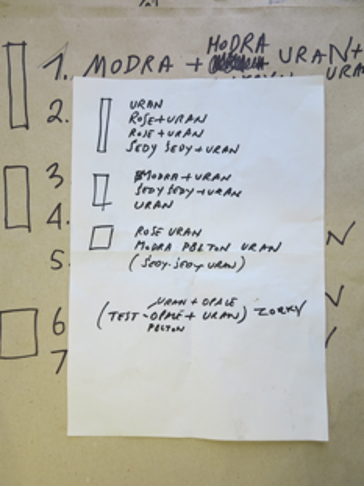 1. MODRA + MODRA URAN +
2.
URAN
ROSE + URAN
ROSE + URAN
SEDY SEDY + URAN
3
MODRA + URAN
SEDY SEDY + URAN
URAN
4.
ROSE URAN
MODRA URAN
5
(SEDY-SEDY URAN)
URAN + OPALE
(TEST - OPALE + URAN) ZORKY
6
7